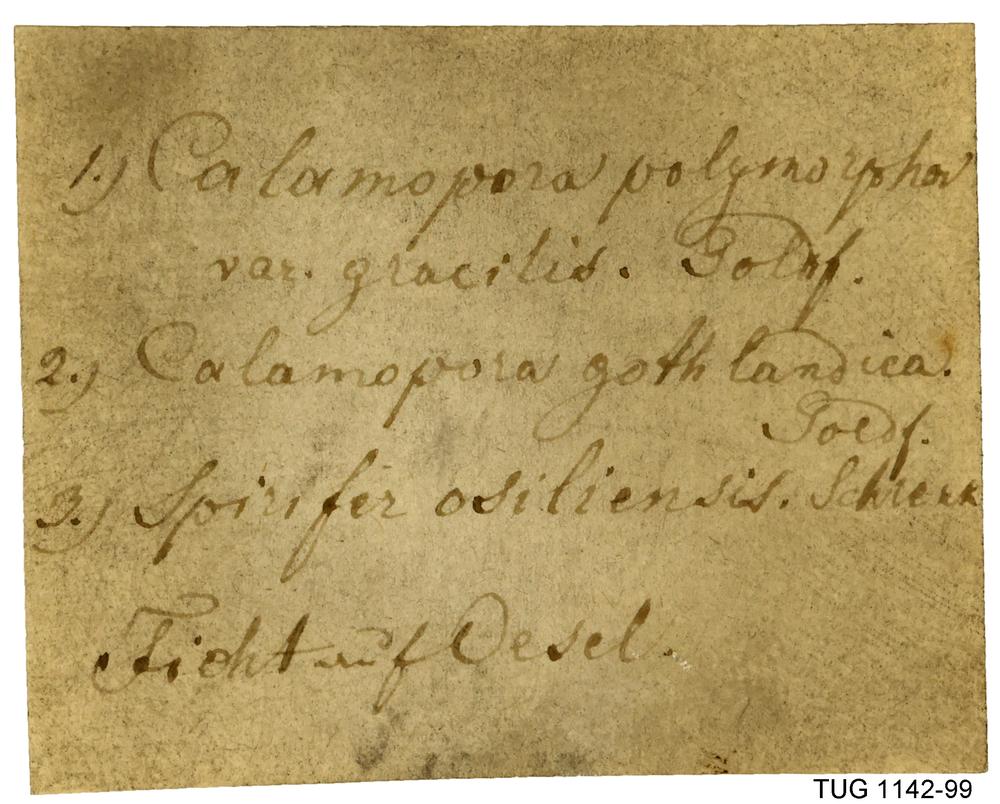 1.) Calamopora polymorpha
var. gracilis. Goldf.
2.) Calamopora gothlandica.
Goldf.
3.) Spirifer osiliensis. Schrenk
Ficht auf Oesel.
TUG 1142-99